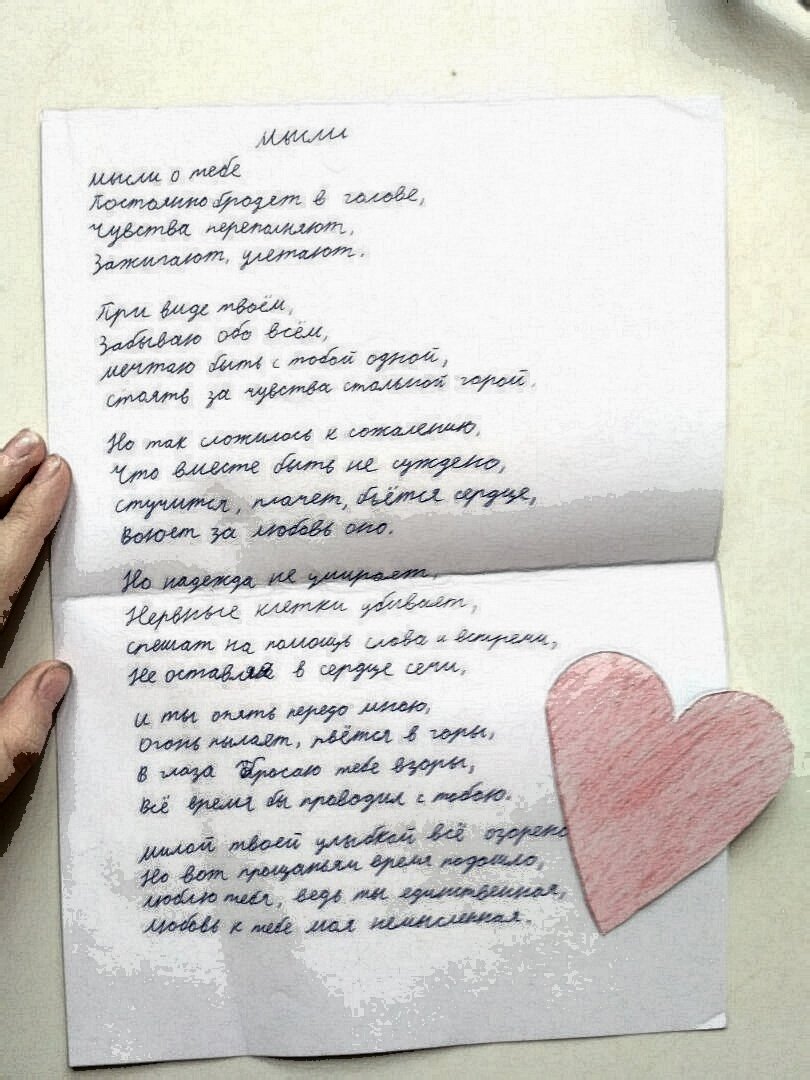 Мысли
Мысли о тебе
Постоянно бродят в голове,
Чувства переполняют,
Зажигают, улетают.
При виде твоём,
Забываю обо всём,
мечтаю быть с тобой одной,
стоять за чувства стальной горой.
Но так сложилось к сожалению,
Что вместе быть не суждено,
стучится, плачет, бьётся сердце,
Воюет за любовь оно.
Но надежда не умирает,
Нервные клетки убивает,
спешат на помощь слова и встречи,
Не оставляя в сердце сечи,
и ты опять передо мною,
Огонь пылает, рвётся в горы,
В глаза бросаю тебе взоры,
Всё время бы проводил с тобою.
милой твоей улыбкой всё озарено
Но вот прощаньям время подошло,
люблю тебя, ведь ты единственная,
Любовь к тебе моя немысленная.